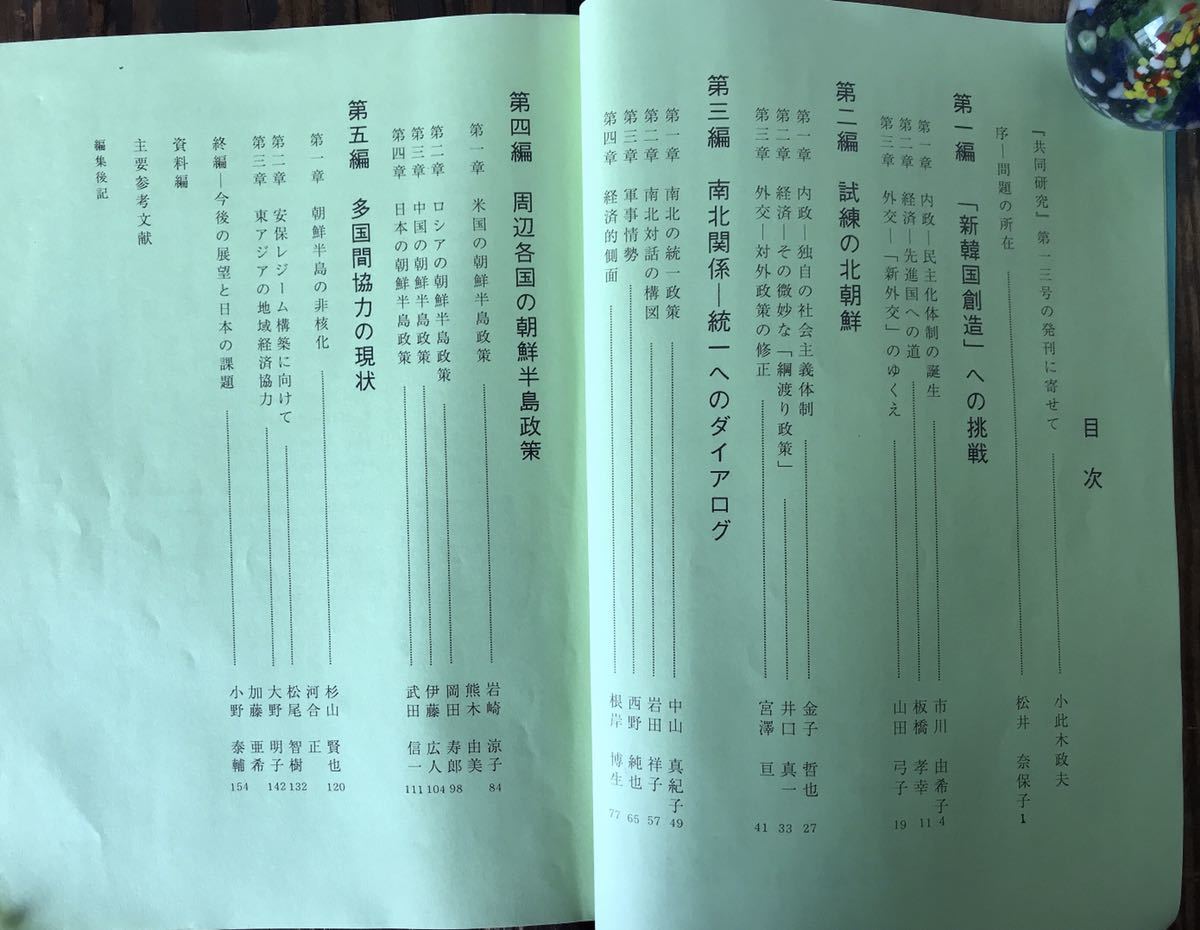 目次
『共同研究』第一三号の発刊に寄せて 小此木政夫
序―問題の所在 松井 奈保子 1
第一編 「新韓国創造」への挑戦
第一章 内政―民主化体制の誕生 市川 由希子 4
第二章 経済―先進国への道 板橋 孝幸 11
第三章 外交―「新外交」のゆくえ 山田 弓子 19
第二編 試練の北朝鮮
第一章 内政―独自の社会主義体制 金子 哲也 27
第二章 経済―その微妙な「綱渡り政策」 井口 真一 33
第三章 外交―対外政策の修正 宮澤 亘 41
第三編 南北関係―統一へのダイアログ
第一章 南北の統一政策 中山 真紀子 49
第二章 南北対話の構図 岩田 祥子 57
第三章 軍事情勢 西野 純也 65
第四章 経済的側面 根岸 博生 77
第四編 周辺各国の朝鮮半島政策
第一章 米国の朝鮮半島政策 岩崎 涼子 84
熊木 由美
第二章 ロシアの朝鮮半島政策 岡田 寿郎 98
第三章 中国の朝鮮半島政策 伊藤 広人 104
第四章 日本の朝鮮半島政策 武田 信一 111
第五編 多国間協力の現状
第一章 朝鮮半島の非核化 杉山 賢也 120
河合 正
第二章 安保レジーム構築に向けて 松尾 智樹 132
第三章 東アジアの地域経済協力 大野 明子 142
加藤 亜希
終編―今後の展望と日本の課題 小野 泰輔 154
資料編
主要参考文献
編集後記